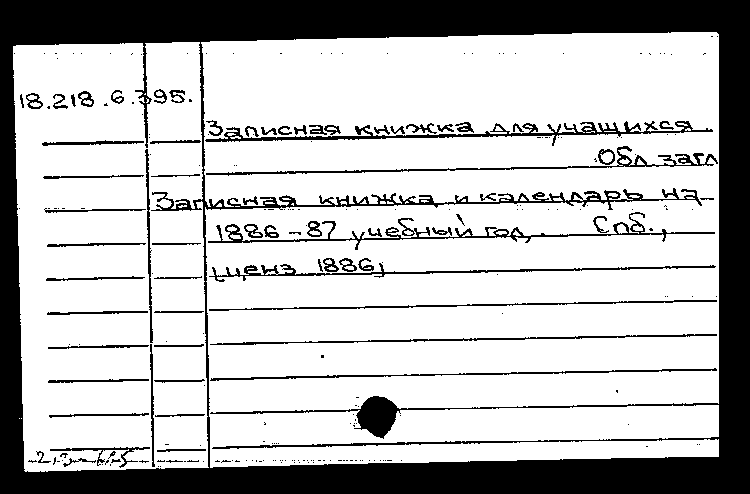 18.218.6.395.
Записная книжка для учащихся.
Обл. загл
Записная книжка и календарь на
1886-87 учебный год. Спб.,
[ценз 1886]